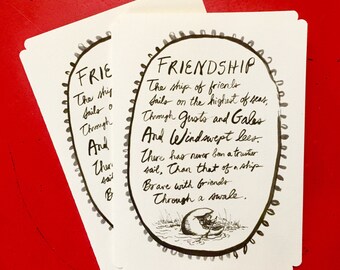 FRIENDSHIP
The ship of friends
Sails on the highest of seas.
Through Gusts and Gales
And Windswept lees.
There has never been a truster
sail, Than that of a ship
Brave with friends
Through a swale.
FRIENDSHIP
The ship
Sails on
Through
And
There has
sail,
Brave